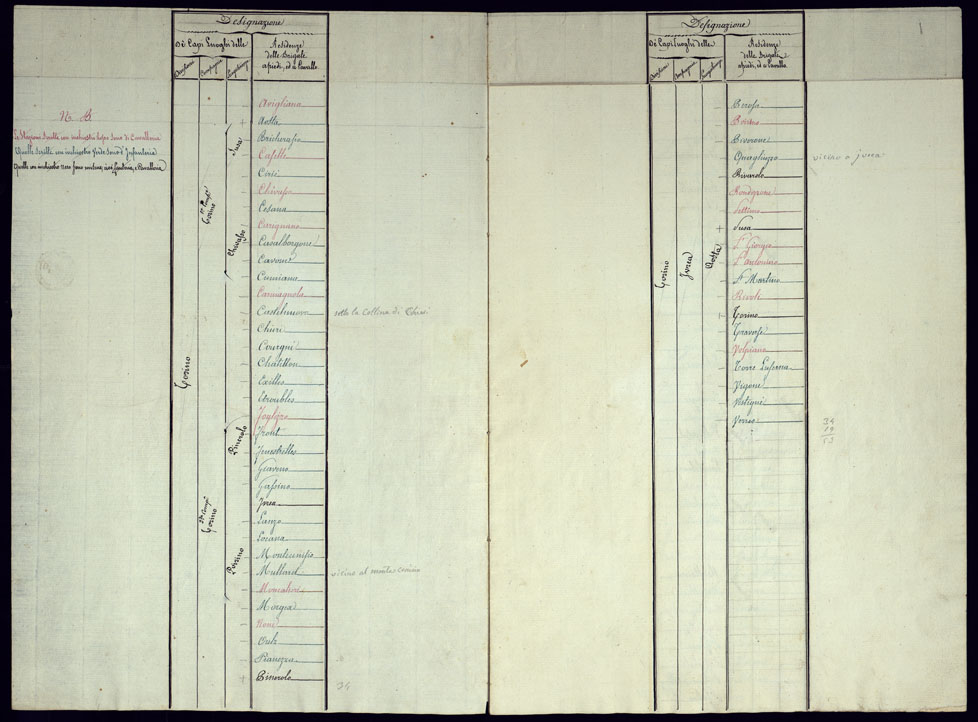 Designazione
Dè Capi Luoghi delle
Residenze
delle Brigate
a piedi, ed a Cavallo
Divisioni
Compagnie
Luogotenze
N. B.
Le Stazioni scritte con inchiostro sono di Cavalleria
Quelle scritte con inchiostro verde sono d'Infanteria
Quelle con inchiostro nero sono Fanteria, e Cavalleria
Torino
1ª Compª
Torino
2ª Compª
Torino
Susa
Chivasso
Pinerolo
Torino
Avigliana
Aosta
Bricherasio
Caselle
Ciriè
Chivasso
Cesana
Carignano
Casalborgone
Cavour
Cumiana
Carmagnola
Castelnuovo
sotto la Collina di Chieri
Chieri
Courgnè
Chatillon
Exilles
Etroubles
Foglizzo
Front
Fenestrelles
Giaveno
Gassino
Ivrea
Lanzo
Locana
Montcenisio
vicino al monte cenisio
Moncalieri
Morgex
None
Oulx
Pianezza
Pinerolo
34
Designazione
1
Dè Capi Luoghi delle
Residenze
delle Brigate
a piedi, ed a Cavallo
Divisioni
Compagnie
Luogotenze
Torino
Ivrea
Aosta
Perosa
Poirino
Piverone
Quagliuzzo
vicino a Ivrea
Rivarolo
Rondissone
Settimo
Susa
S. Giorgio
S. Antonino
St. Martino
Rivoli
Torino
Traverse
Volpiano
Torre Luserna
Vigone
Vestignè
Verres
34
19
53